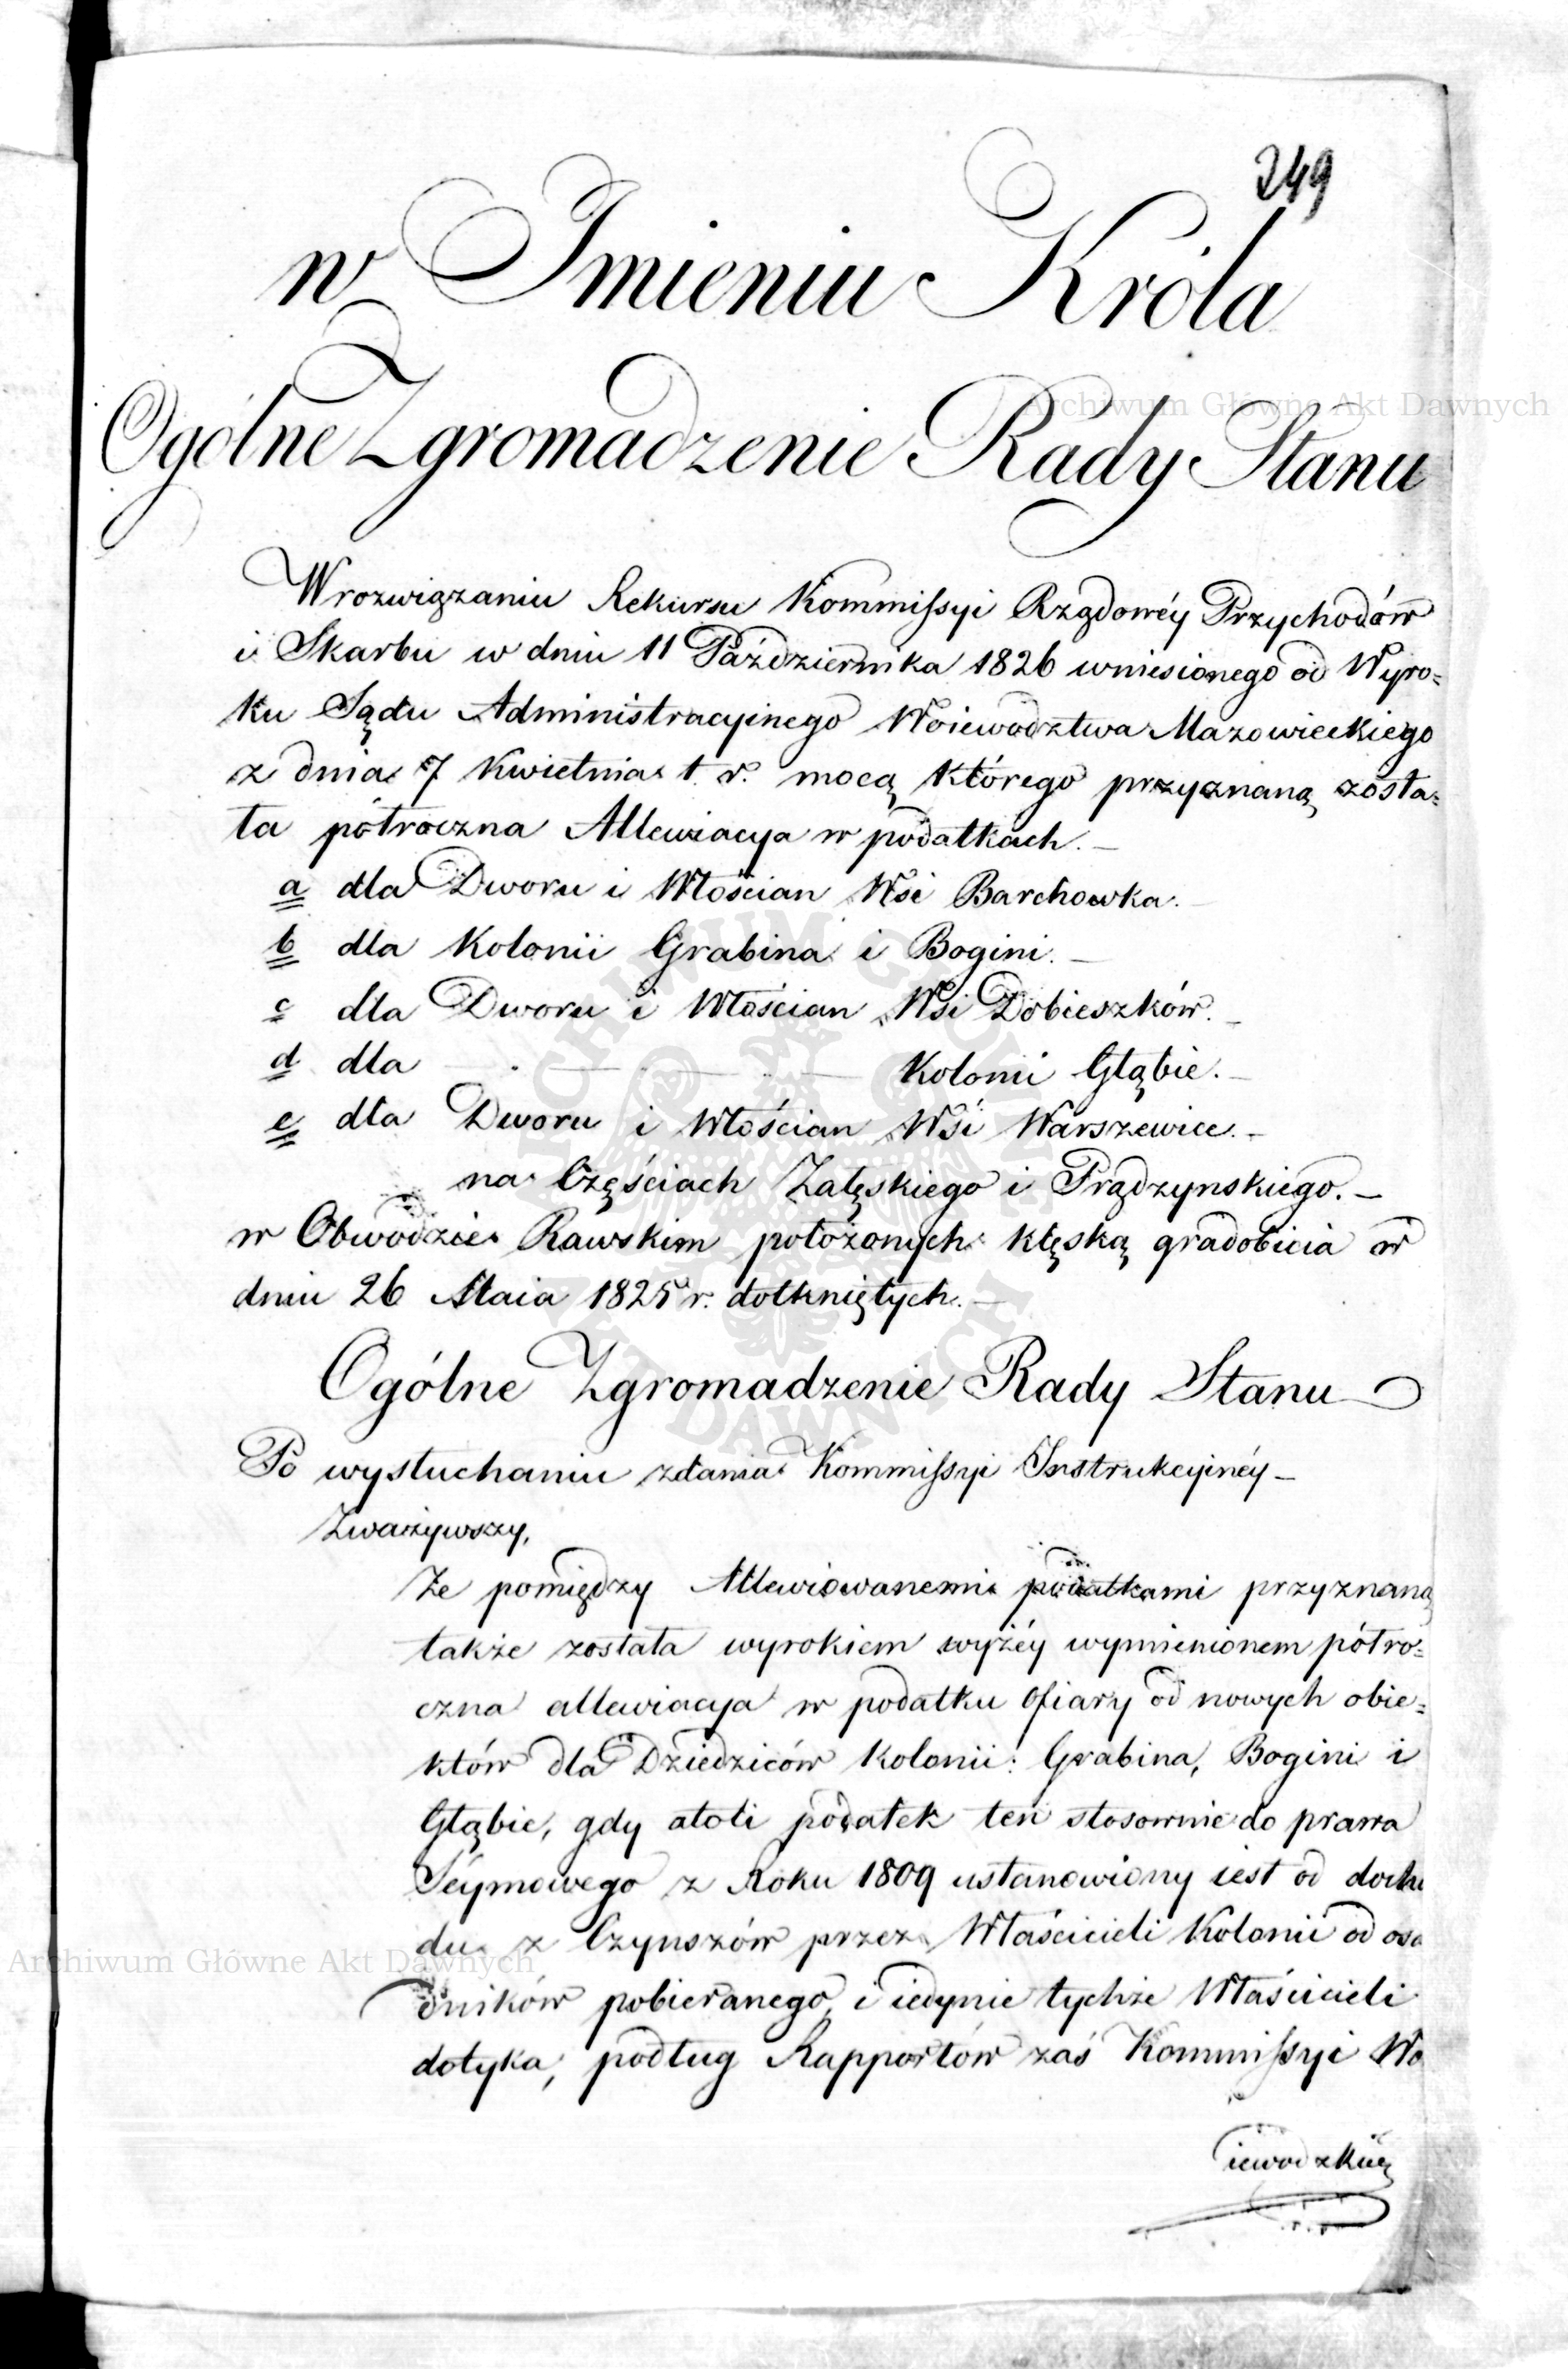 249
w Imieniu Króla
Ogólne Zgromadzenie Rady Stanu
W rozwiązaniu Rekursu Kommissyi Rządowéy Przychodów
i Skarbu w dniu 11 Października 1826 wniesionego od Wyro=
ku Sądu Administracyinego Woiewodztwa Mazowieckiego
z dnia 7 Kwietnia t. r. mocą którego przyznaną zosta=
ła półroczna Allewiacya w podatkach.
a dla Dworu i Włościan Wsi Barchowka.
b dla Kolonii Grabina i Bogini.
c dla Dworu i Włościan Wsi Dobieszków.
d dla Kolonii Głąbie.
e dla Dworu i Włościan Wsi Warszewice.
na Częściach Załęskiego i Prądzynskiego.
w Obwodzie Rawskim położonych klęską gradobicia w
dniu 26 Maia 1825 r. dotkniętych.
Ogólne Zgromadzenie Rady Stanu
Po wysłuchaniu zdania Kommissyi Instrukcyinéy
Zważywszy,
Że pomiędzy Allewiowanemi podatkami przyznaną
także została wyrokiem wyżéy wymienionem półro=
czna allewiacya w podatku ofiary od nowych obie=
któw dla Dziedziców Kolonii: Grabina, Bogini i
Głąbie, gdy atoli podatek ten stosownie do prawa
Séymowego z Roku 1809 ustanowiony iest od docho
du z Czynszów przez Właścicieli Kolonii od osa
dników pobieranego, i iedynie tychże Właścicieli
dotyka, podług Rapportów zaś Kommissyi Wo
iewodzkiey
Archiwum Główne Akt Dawnych
Archiwum Główne Akt Dawnych
ARCHIWUM GŁÓWNE AKT DAWNYCH